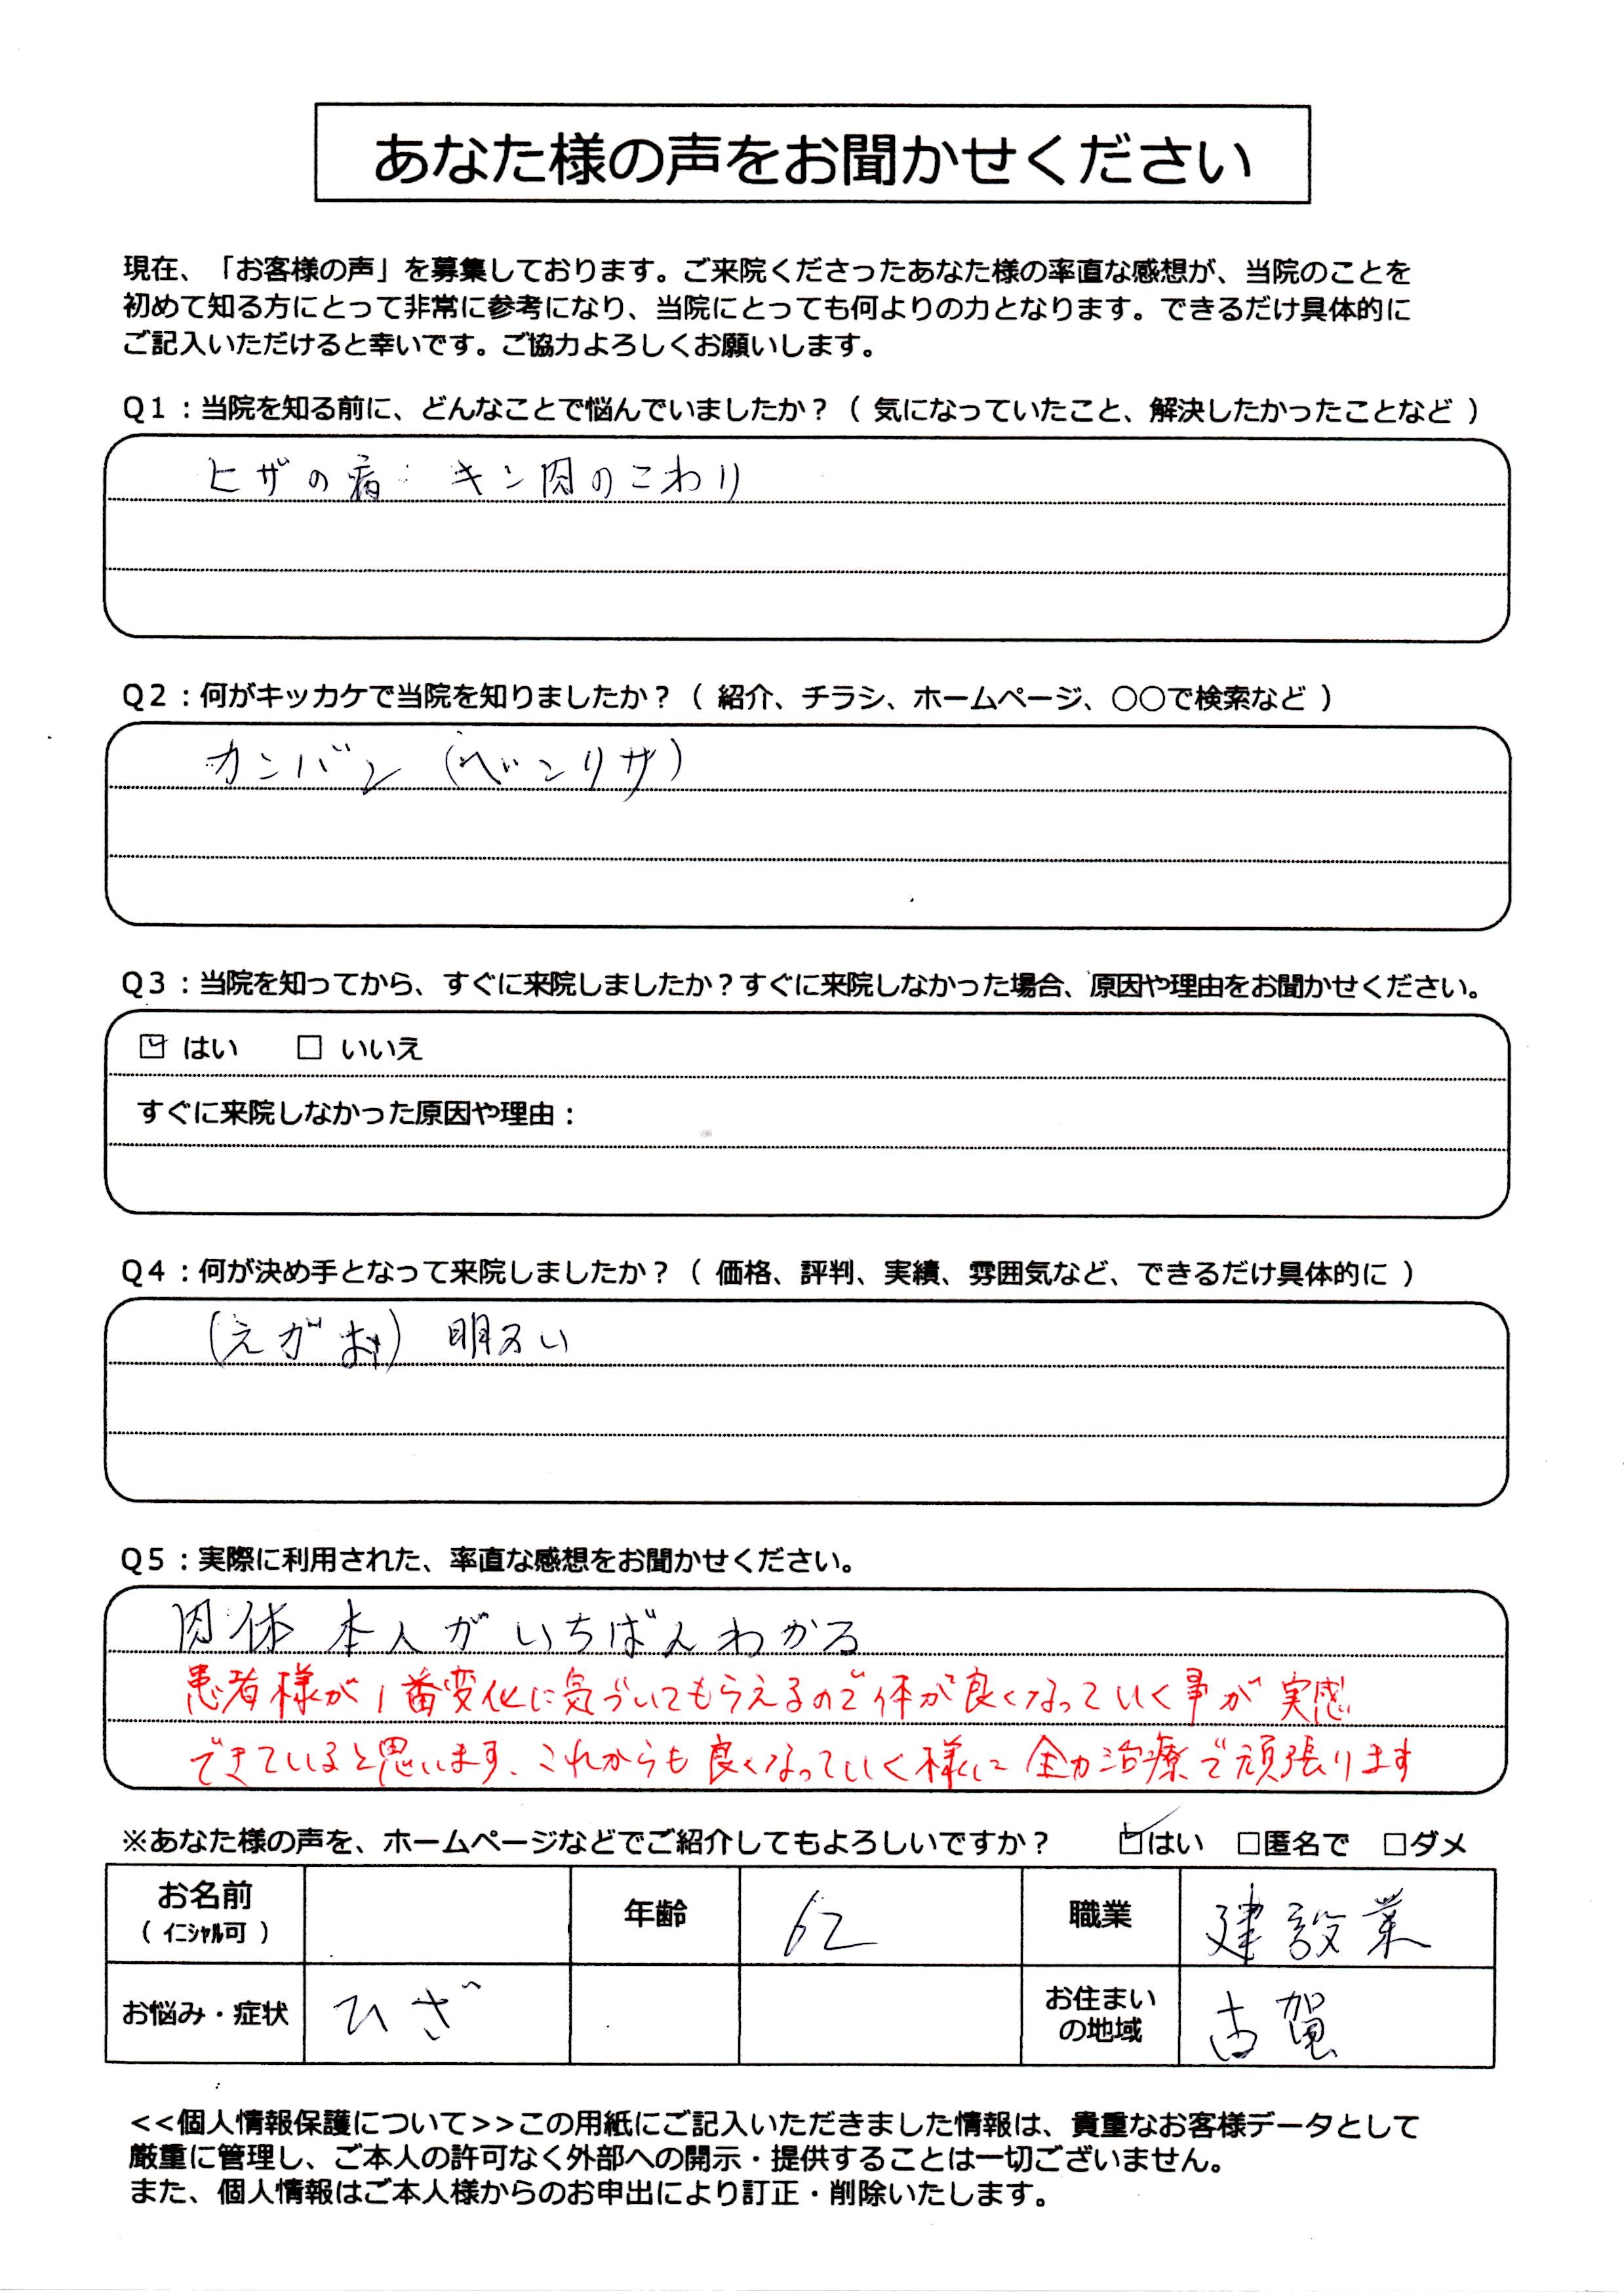 あなた様の声をお聞かせください
現在、「お客様の声」を募集しております。ご来院くださったあなた様の率直な感想が、当院のことを
初めて知る方にとって非常に参考になり、当院にとっても何よりの力となります。できるだけ具体的に
ご記入いただけると幸いです。ご協力よろしくお願いします。
Q1：当院を知る前に、どんなことで悩んでいましたか？（ 気になっていたこと、解決したかったことなど ）
ヒザの病 キン肉のこわり
Q2：何がキッカケで当院を知りましたか？（ 紹介、チラシ、ホームページ、○○で検索など ）
カンバン（ベンリサ）
Q3：当院を知ってから、すぐに来院しましたか？すぐに来院しなかった場合、原因や理由をお聞かせください。
☑ はい □ いいえ
すぐに来院しなかった原因や理由：
Q4：何が決め手となって来院しましたか？（ 価格、評判、実績、雰囲気など、できるだけ具体的に ）
（えがお） 明るい
Q5：実際に利用された、率直な感想をお聞かせください。
肉体 本人がいちばんわかる
患者様が1番変化に気づいてもらえるので体が良くなっていく事が実感
できていると思います、これからも良くなっていく様に全力治療で頑張ります
※あなた様の声を、ホームページなどでご紹介してもよろしいですか？ ☑はい □匿名で □ダメ
お名前 年齢 62 職業 建設業
（ ｲﾆｼｬﾙ可 ）
お悩み・症状 ひざ お住まいの地域 古賀
<<個人情報保護について>>この用紙にご記入いただきました情報は、貴重なお客様データとして
厳重に管理し、ご本人の許可なく外部への開示・提供することは一切ございません。
また、個人情報はご本人様からのお申出により訂正・削除いたします。